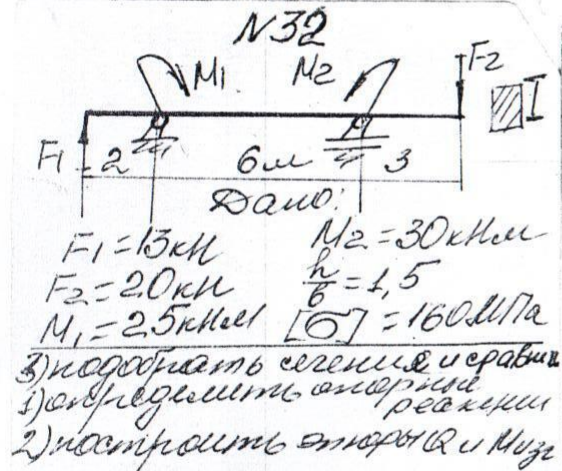 N32
M1 M2 F2
F1 2 6м 3
Дано:
F1=13кН M2=30кНм
F2=20кН h/b=1,5
M1=25кНм [σ]=160МПа
3) подобрать сечения и сравни
1) определить опорные
реакции
2) построить эпюры Q и Mизг